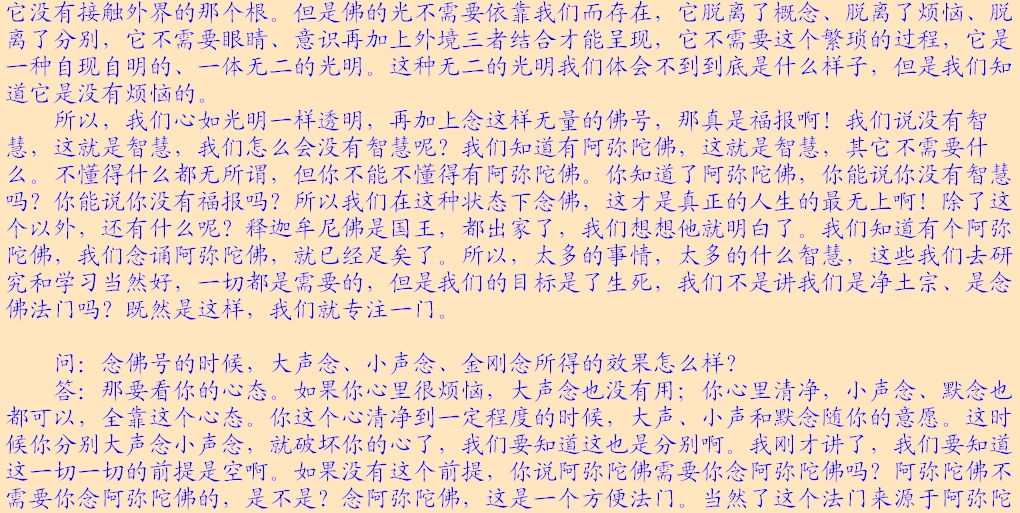 它没有接触外界的那个根。但是佛的光不需要依靠我们而存在，它脱离了概念、脱离了烦恼、脱
离了分别，它不需要眼睛、意识再加上外境三者结合才能呈现，它不需要这个繁琐的过程，它是
一种自现自明的、一体无二的光明。这种无二的光明我们体会不到到底是什么样子，但是我们知
道它是没有烦恼的。
所以，我们心如光明一样透明，再加上念这样无量的佛号，那真是福报啊！我们说没有智
慧，这就是智慧，我们怎么会没有智慧呢？我们知道有阿弥陀佛，这就是智慧，其它不需要什
么。不懂得什么都无所谓，但你不能不懂得有阿弥陀佛。你知道了阿弥陀佛，你能说你没有智慧
吗？你能说你没有福报吗？所以我们在这种状态下念佛，这才是真正的人生的最无上啊！除了这
个以外，还有什么呢？释迦牟尼佛是国王，都出家了，我们想想他就明白了。我们知道有个阿弥
陀佛，我们念诵阿弥陀佛，就已经足矣了。所以，太多的事情，太多的什么智慧，这些我们去研
究和学习当然好，一切都是需要的，但是我们的目标是了生死，我们不是讲我们是净土宗、是念
佛法门吗？既然是这样，我们就专注一门。
问：念佛号的时候，大声念、小声念、金刚念所得的效果怎么样？
答：那要看你的心态。如果你心里很烦恼，大声念也没有用；你心里清净，小声念、默念也
都可以，全靠这个心态。你这个心清净到一定程度的时候，大声、小声和默念随你的意愿。这时
候你分别大声念小声念，就破坏你的心了，我们要知道这也是分别啊。我刚才讲了，我们要知道
这一切一切的前提是空啊。如果没有这个前提，你说阿弥陀佛需要你念阿弥陀佛吗？阿弥陀佛不
需要你念阿弥陀佛的，是不是？念阿弥陀佛，这是一个方便法门。当然了这个法门来源于阿弥陀